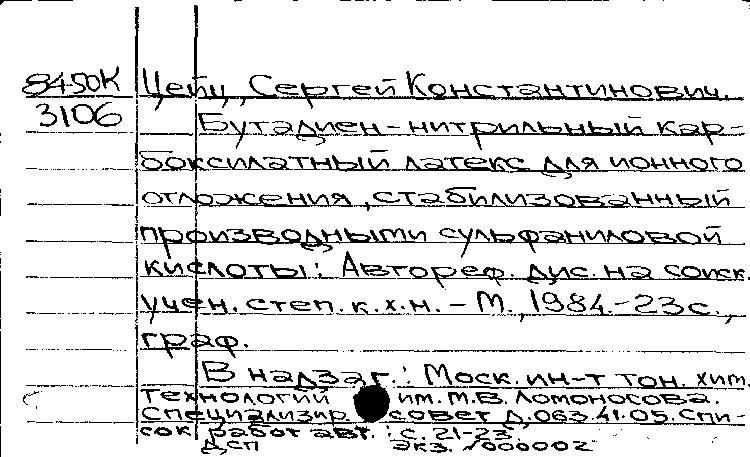 8450К Цейц, Сергей Константинович.
3106 Бутадиен-нитрильный кар-
боксилатный латекс для ионного
отложения, стабилизованный
производными сульфаниловой
кислоты: Автореф. дис. на соиск.
учен. степ. к.х.н. - М., 1984.-23с.,
граф.
В надзаг.: Моск. ин-т тон. хим.
технологий им. М.В. Ломоносова.
Специализир. совет Д.063.41.05. Спи-
сок работ авт.: с. 21-23.
ДСП Экз. №000002